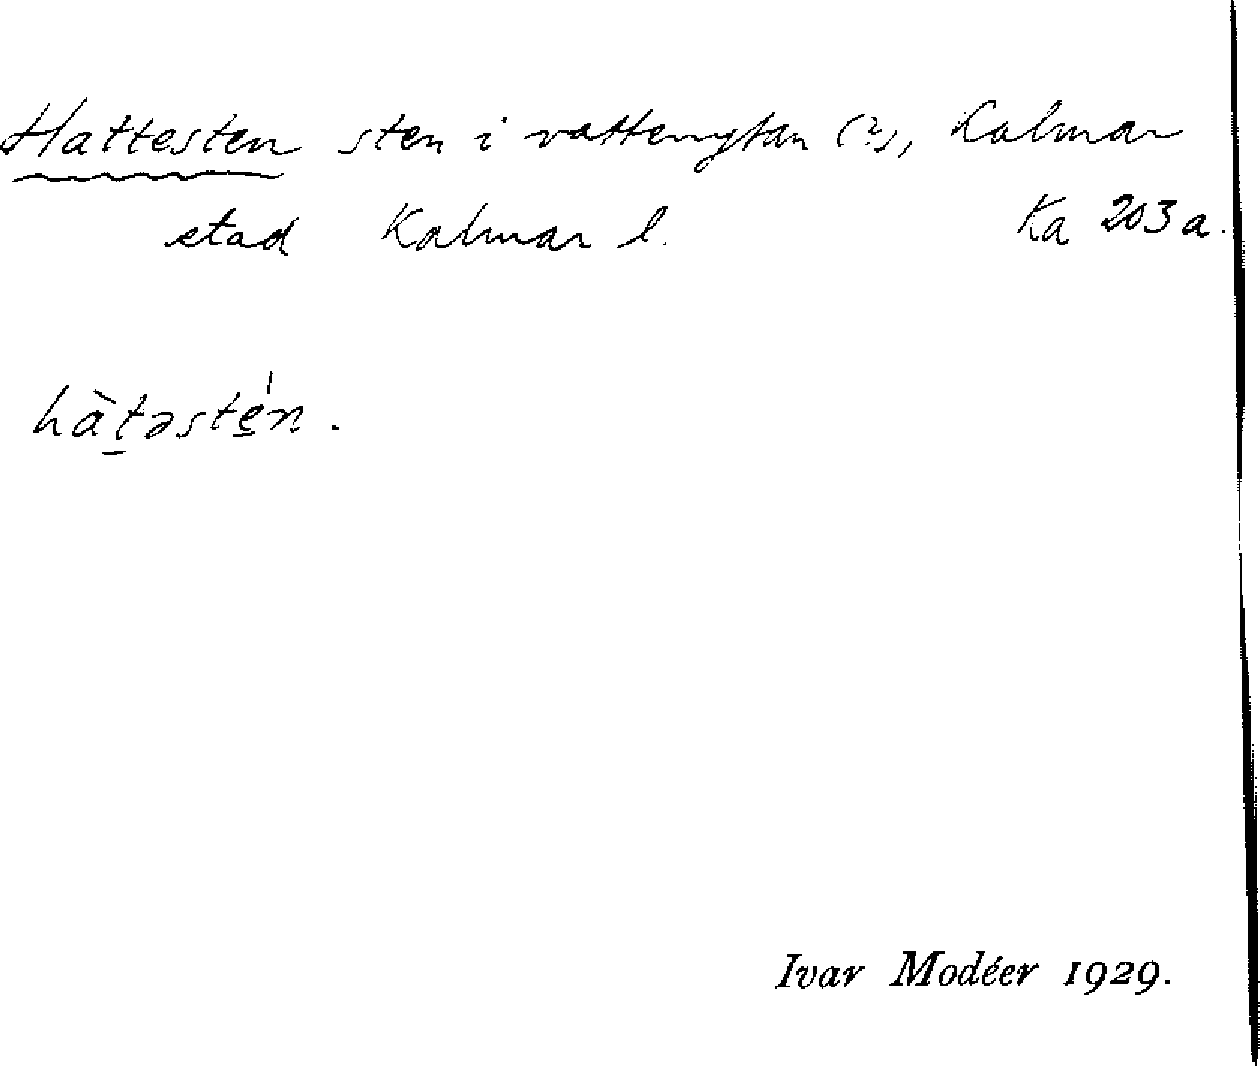 Hattesten sten i vattenytan (?), Kalmar
stad Kalmar l. Ka 203a.
hàt̲əsté̲n.
Ivar Modéer 1929.